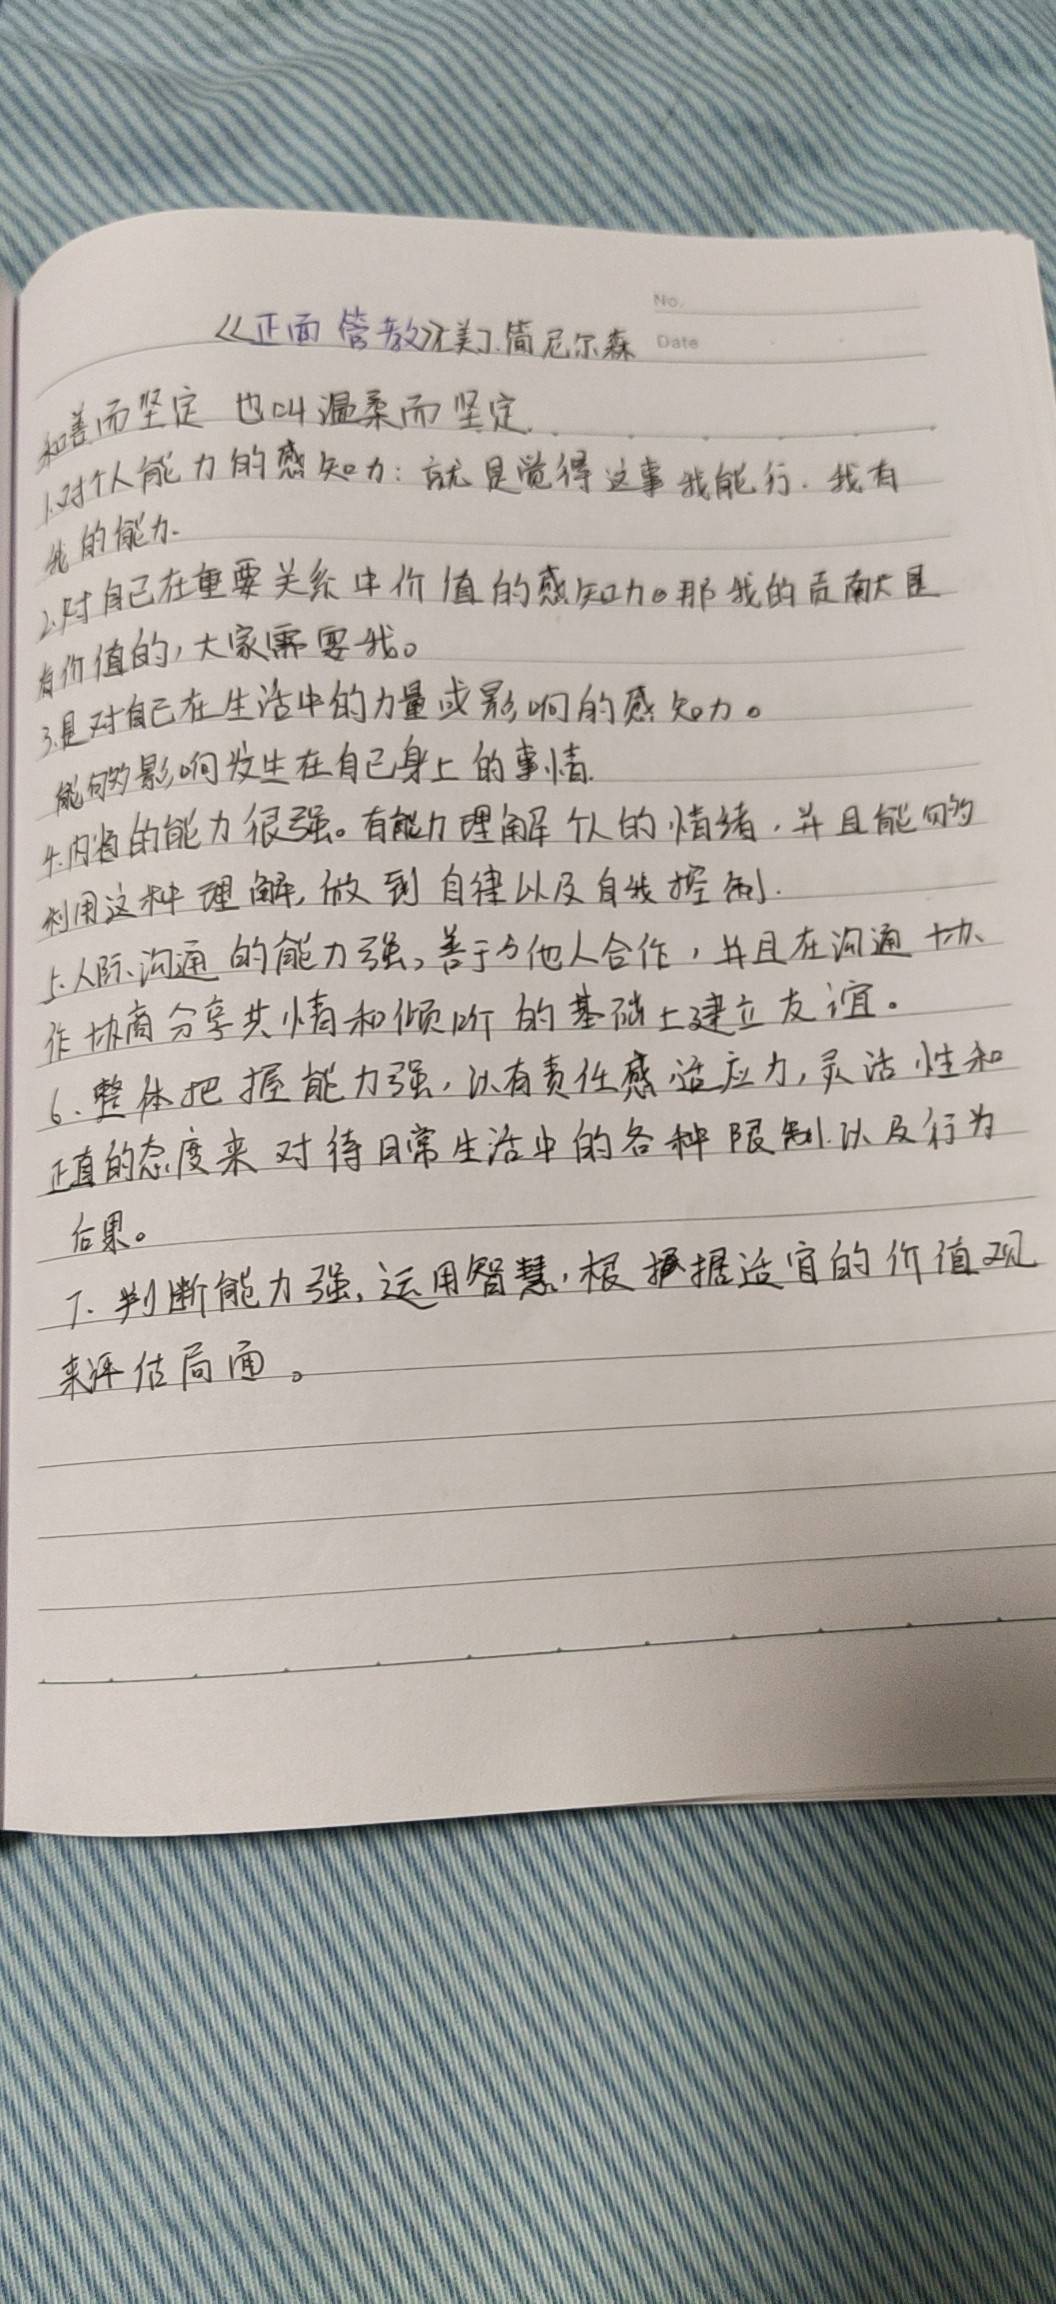 No.
《正面管教》〔美〕.简尼尔森
Date
和善而坚定 也叫温柔而坚定.
1.对个人能力的感知力:就是觉得这事我能行.我有
我的能力.
2.对自己在重要关系中价值的感知力。那我的贡献是
有价值的,大家需要我。
3.是对自己在生活中的力量或影响的感知力。
能够影响发生在自己身上的事情.
4.内省的能力很强。有能力理解个人的情绪,并且能够
利用这种理解,做到自律以及自我控制.
5.人际沟通的能力强,善于与他人合作,并且在沟通协
作协商分享共情和倾听的基础上建立友谊。
6、整体把握能力强,以有责任感适应力,灵活性和
正直的态度来对待日常生活中的各种限制以及行为
后果。
7.判断能力强,运用智慧,根据适宜的价值观
来评估局面。